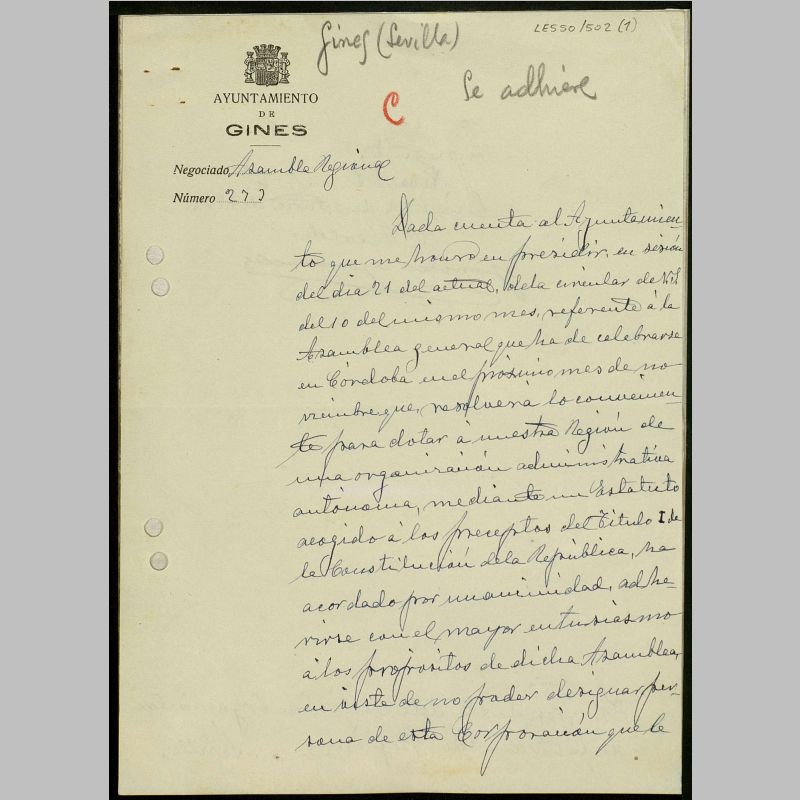 LES50/502 (1)
Gines (Sevilla)
Se adhiere
C
AYUNTAMIENTO
DE
GINES
Negociado Asamblea Regional
Número 273
Dada cuenta al Ayuntamien-
to que me honro en presidir, en sesión
del dia 21 del actual, de la circular de V.S.
del 10 del mismo mes, referente á la
Asamblea general que ha de celebrarse
en Córdoba en el próximo mes de no
viembre que, resolverá lo convenien-
te para dotar á nuestra Región de
una organización administrativa
autónoma, mediante un Estatuto
acogido á los preceptos del Titulo I de
la Constitución de la República, ha
acordado por unanimidad, adhe-
rirse con el mayor entusiasmo
á los propósitos de dicha Asamblea,
en vista de no poder designar per-
sona de esta Corporación que le